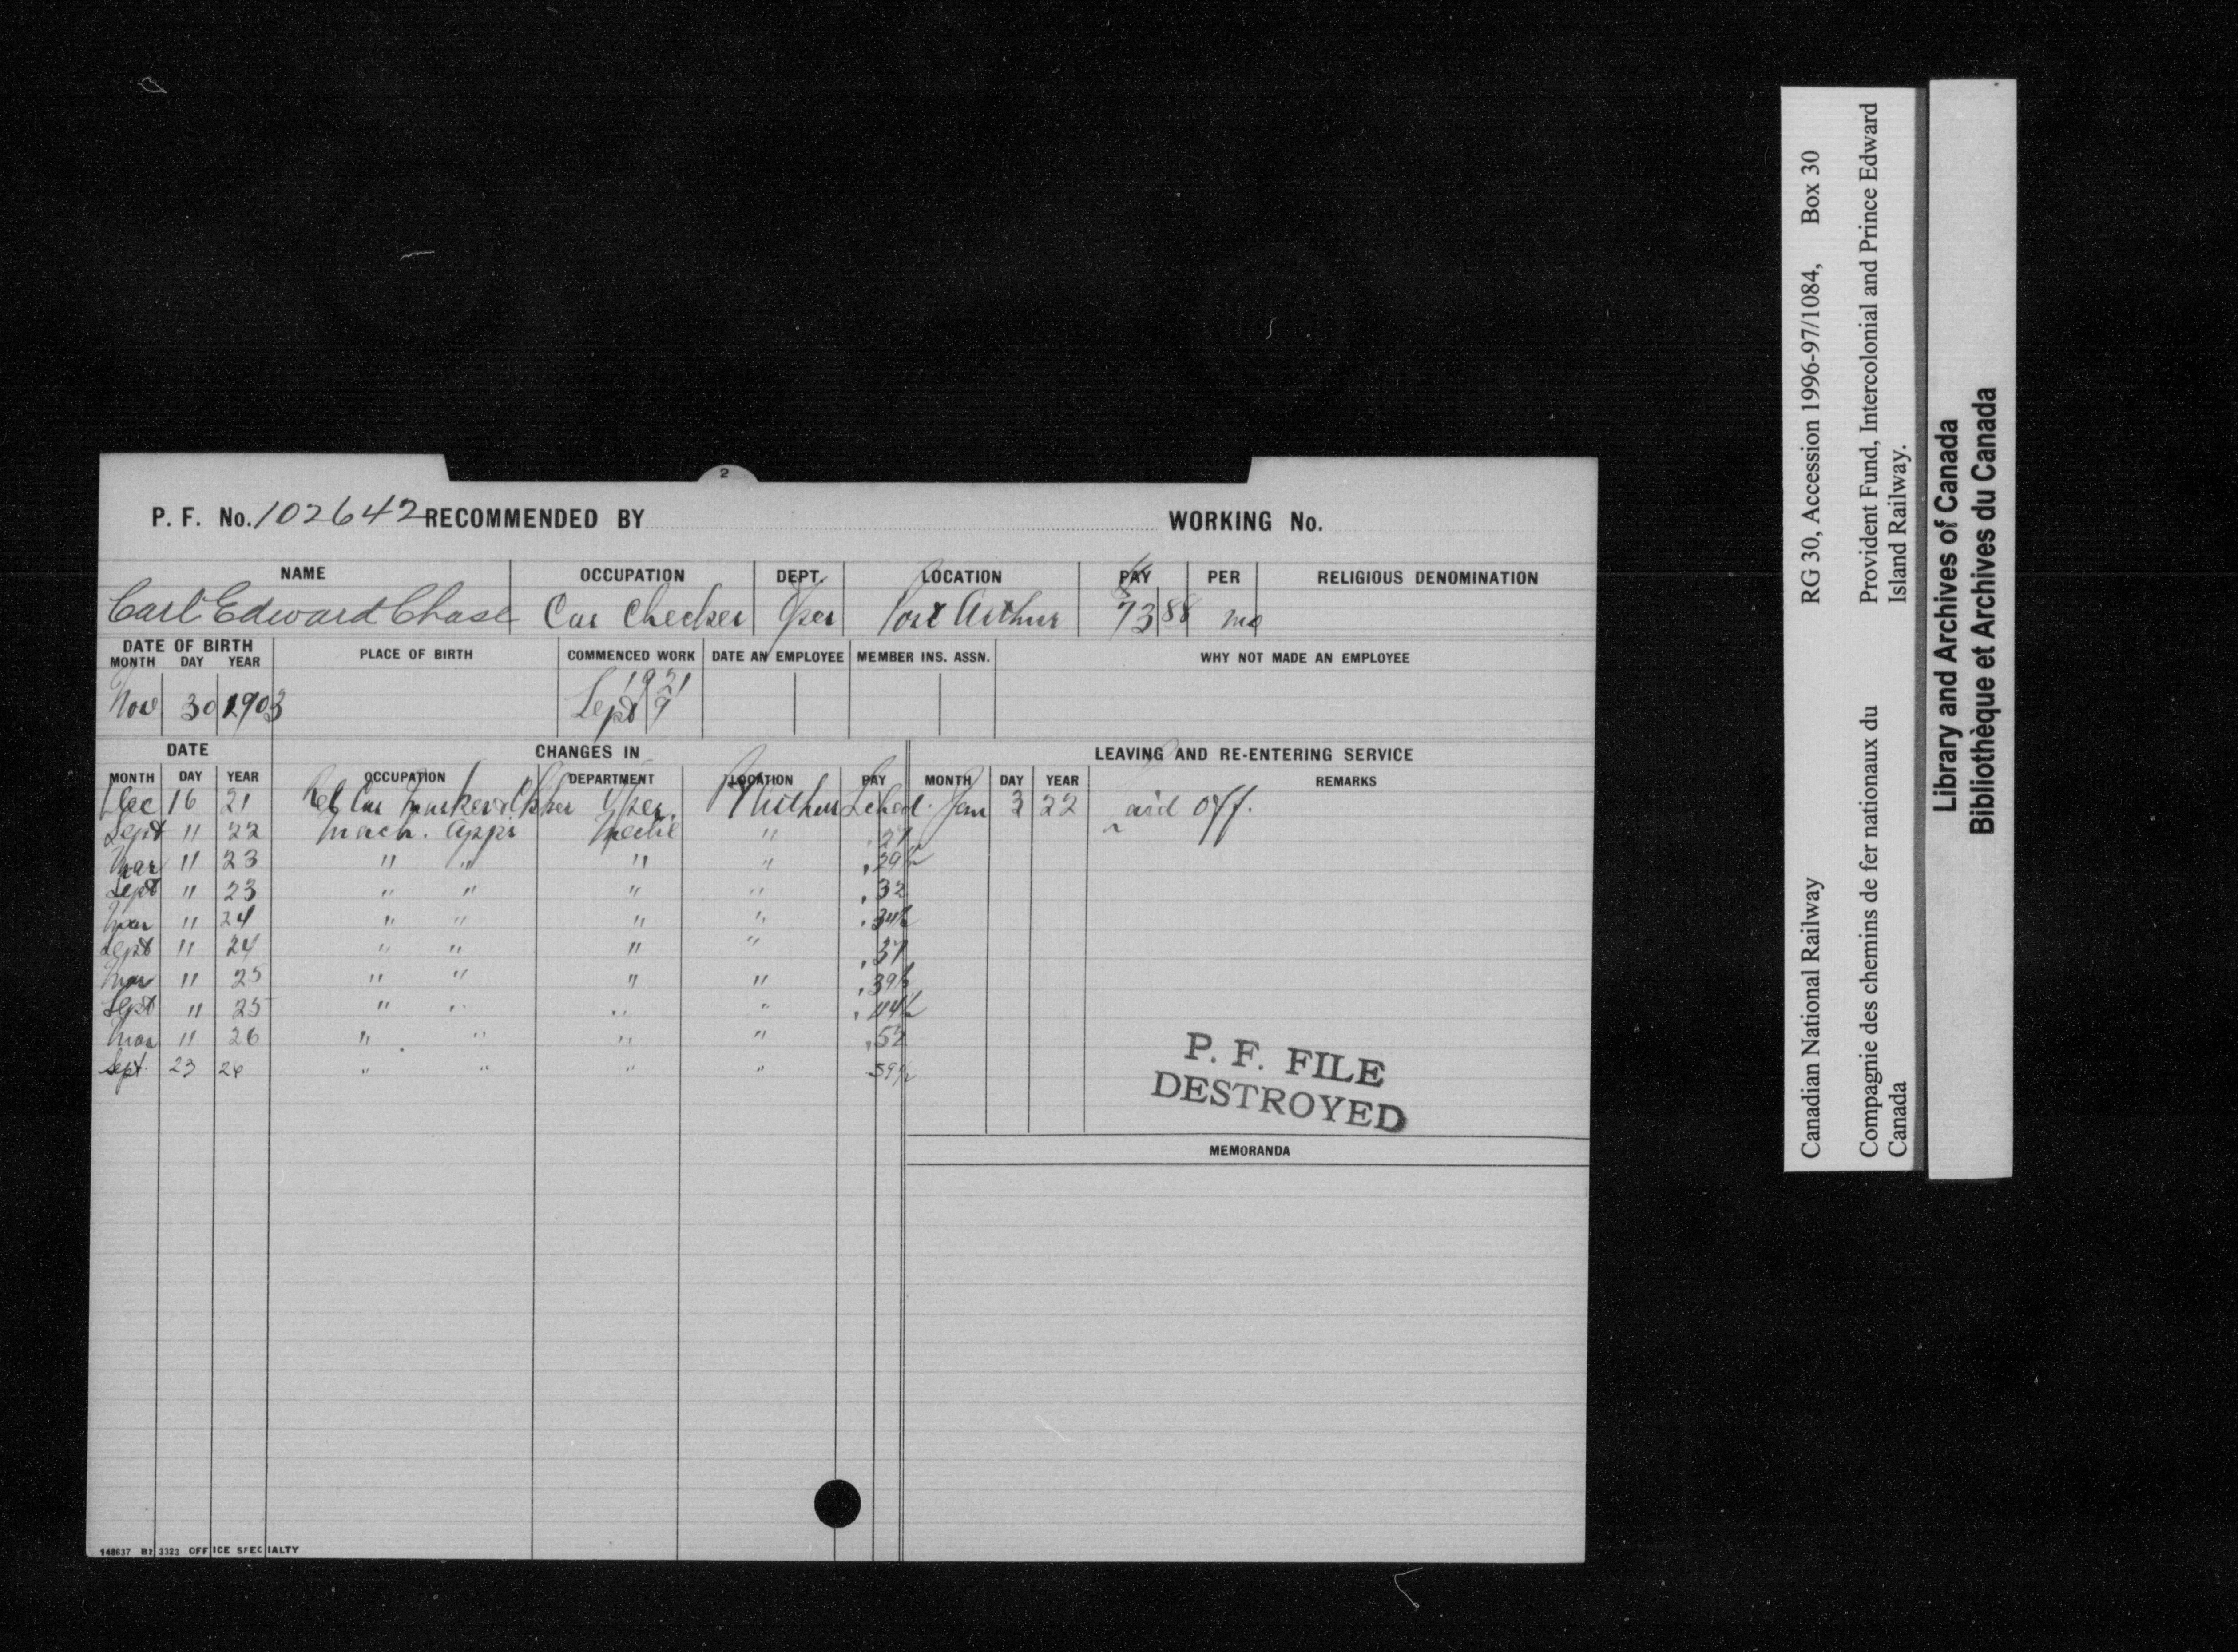 2
P. F. No. 102642 RECOMMENDED BY WORKING No.
NAME OCCUPATION DEPT. LOCATION PAY PER RELIGIOUS DENOMINATION
Carl Edward Chase Car Checker Oper Port Arthur 73 88 mo
DATE OF BIRTH
MONTH DAY YEAR PLACE OF BIRTH COMMENCED WORK DATE AN EMPLOYEE MEMBER INS. ASSN. WHY NOT MADE AN EMPLOYEE
1921
Nov 30 1903 Sept 9
DATE CHANGES IN LEAVING AND RE-ENTERING SERVICE
MONTH DAY YEAR OCCUPATION DEPARTMENT LOCATION PAY MONTH DAY YEAR REMARKS
Dec 16 21 Rel Car Marker & Oper. Pt Arthur Sched. Jan 3 22 Laid Off.
Sept " 22 Mach. Appr " .27
Mar " 23 " " " " .29½
Sept " 23 " " " " .32
Mar " 24 " " " " .34½
Sept " 24 " " " " .37
Mar " 25 " " " " .39½
Sept " 25 " " " " .44½
Mar " 26 " " " " .52
Sept. 23 26 " " " " 59½
P. F. FILE
DESTROYED
MEMORANDA
148637 3323 OFFICE SPECIALTY
Canadian National Railway RG 30, Accession 1996-97/1084, Box 30
Compagnie des chemins de fer nationaux du Provident Fund, Intercolonial and Prince Edward
Canada Island Railway.
Library and Archives of Canada
Bibliothèque et Archives du Canada